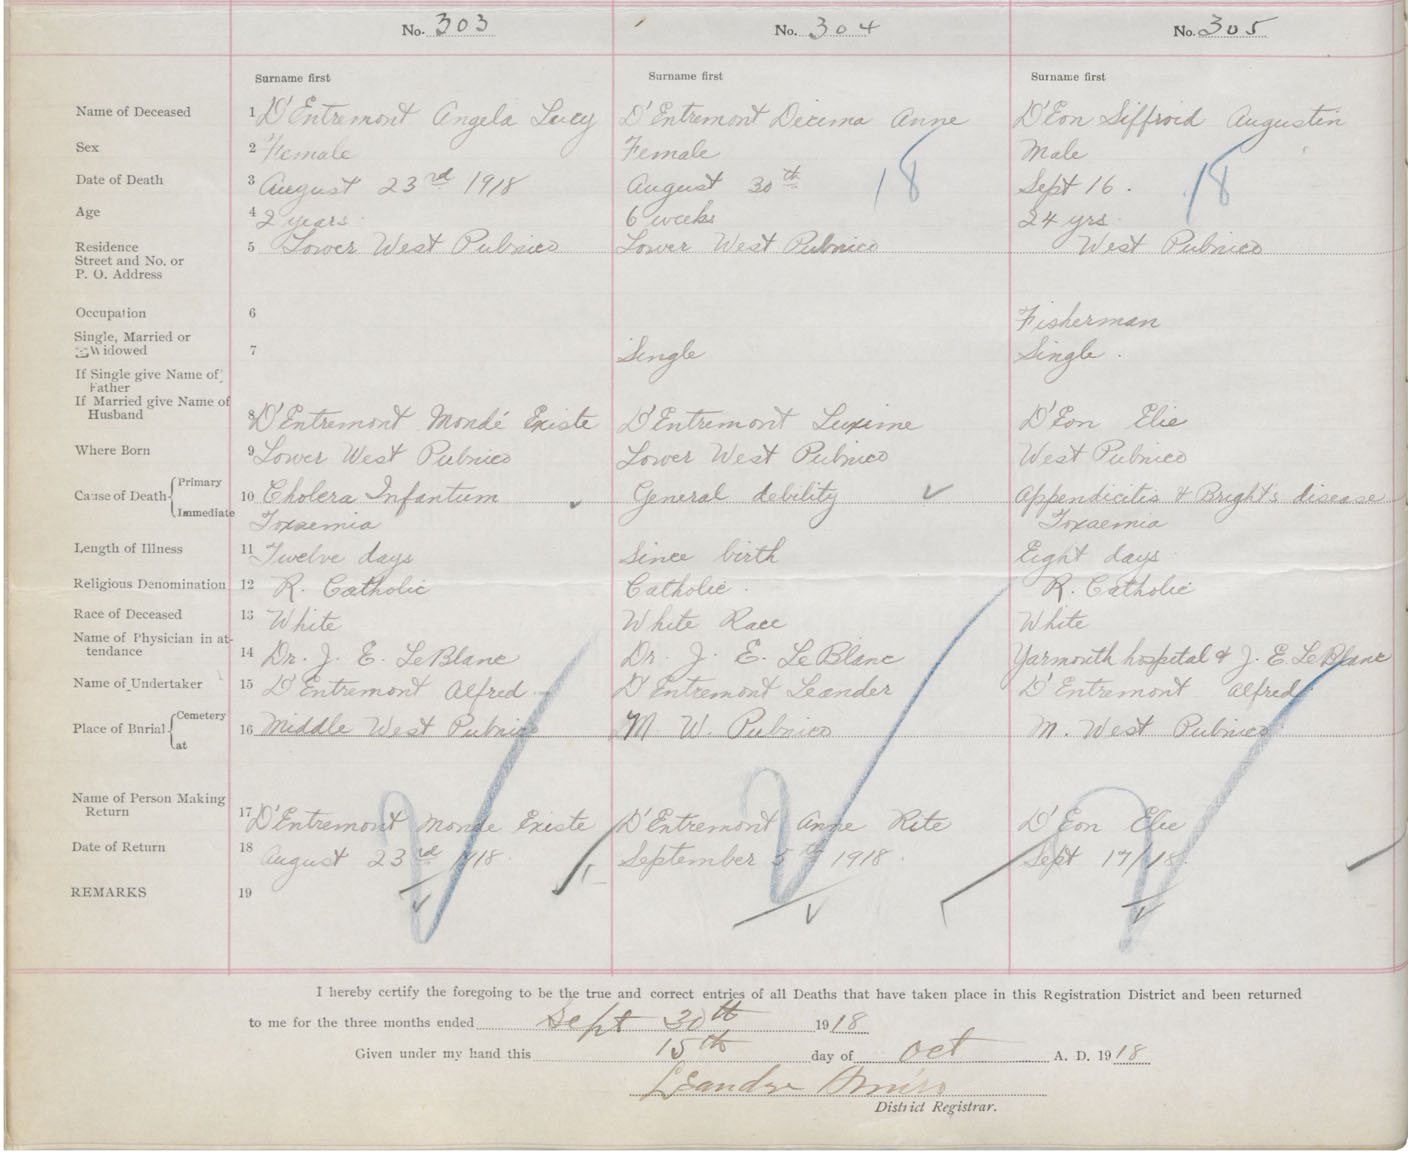 No. 303 No. 304 No. 305
Surname first Surname first Surname first
Name of Deceased 1 D'Entremont Angela Lucy D'Entremont Decima Anne D'Eon Siffroid Augustin
Sex 2 Female Female Male
Date of Death 3 August 23rd 1918 August 30th 18 Sept 16. 18
Age 4 2 years 6 weeks 24 yrs.
Residence 5 Lower West Pubnico Lower West Pubnico West Pubnico
Street and No. or
P. O. Address
Occupation 6 Fisherman
Single, Married or
Widowed 7 Single Single.
If Single give Name of
Father
If Married give Name of
Husband 8 D'Entremont Mondé Existe D'Entremont Luxime D'Eon Elie
Where Born 9 Lower West Pubnico Lower West Pubnico West Pubnico
Cause of Death Primary 10 Cholera Infantum General debility Appendicitis & Bright's disease
Immediate Toxaemia Toxaemia
Length of Illness 11 Twelve days Since birth Eight days
Religious Denomination 12 R. Catholic Catholic. R. Catholic
Race of Deceased 13 White White Race White
Name of Physician in at-
tendance 14 Dr. J. E. LeBlanc Dr. J. E. LeBlanc Yarmouth hospital & J. E. LeBlanc
Name of Undertaker 15 D'Entremont Alfred D'Entremont Leander D'Entremont Alfred
Place of Burial Cemetery 16 Middle West Pubnico M. W. Pubnico M. West Pubnico
at
Name of Person Making
Return 17 D'Entremont Monde Existe D'Entremont Anne Rite D'Eon Elie
Date of Return 18 August 23rd 1918. September 5th 1918. Sept 17/18.
REMARKS 19
I hereby certify the foregoing to be the true and correct entries of all Deaths that have taken place in this Registration District and been returned
to me for the three months ended Sept 30th 1918
Given under my hand this 15th day of Oct A. D. 1918
Leandre Amiro
District Registrar.